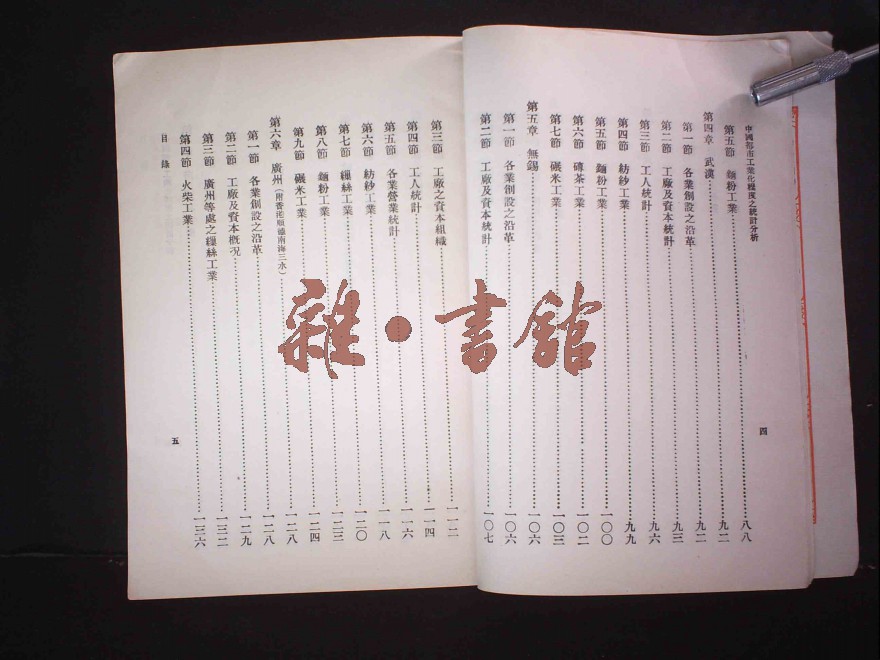 中國都市工業化程度之統計分析
第五節 麵粉工業 八八
第四章 武漢 九二
第一節 各業創設之沿革 九二
第二節 工廠及資本統計 九三
第三節 工人統計 九六
第四節 紡紗工業 九九
第五節 麵粉工業 一〇〇
第六節 磚茶工業 一〇二
第七節 碾米工業 一〇三
第五章 無錫 一〇六
第一節 各業創設之沿革 一〇六
第二節 工廠及資本統計 一〇七
四
第三節 工廠之資本組織 一一二
第四節 工人統計 一一四
第五節 各業營業統計 一一六
第六節 紡紗工業 一一八
第七節 繅絲工業 一二〇
第八節 麵粉工業 一二三
第九節 碾米工業 一二四
第六章 廣州(附香港順德南海三水) 一二八
第一節 各業創設之沿革 一二八
第二節 工廠及資本概況 一二九
第三節 廣州等處之繅絲工業 一三二
第四節 火柴工業 一三六
目錄
五
雜·書館